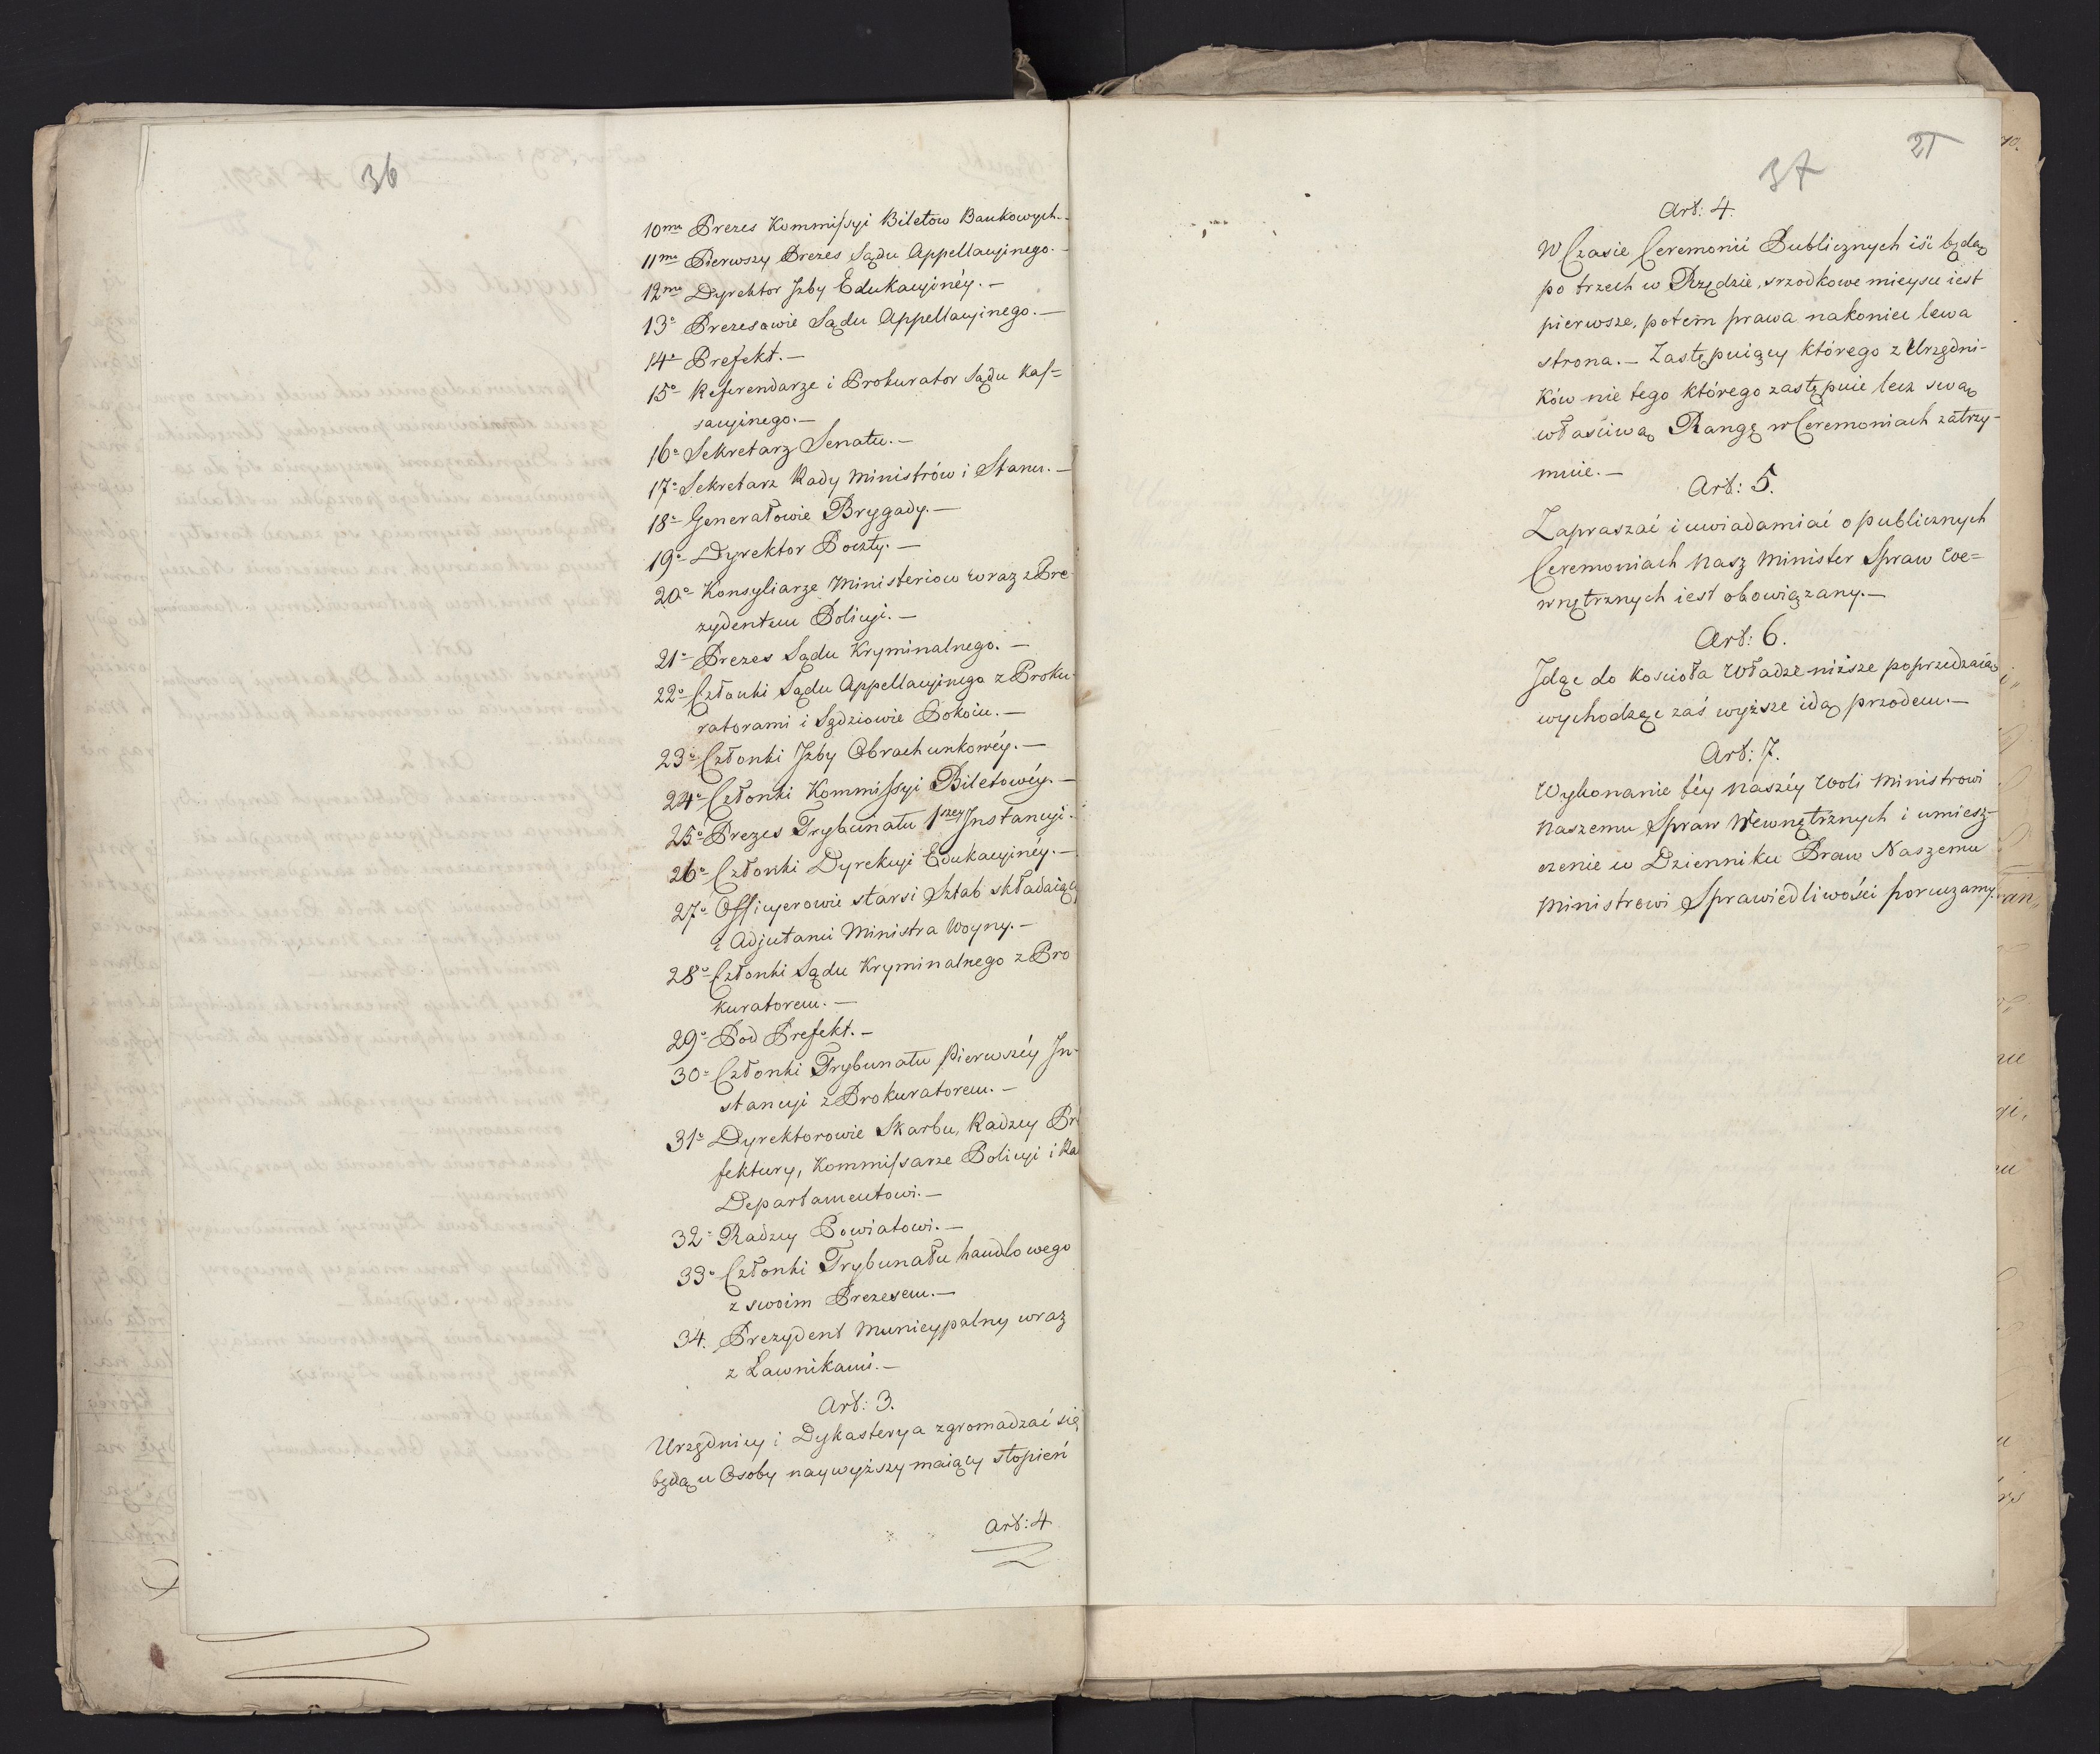 36
10mo Prezes Kommissyi Biletow Bankowych.
11mo Pierwszy Prezes Sądu Appellacyinego. —
12mo Dyrektor Jzby Edukacyinéy. —
13o Prezesowie Sądu Appellacyinego. —
14o Prefekt. —
15o Referendarze i Prokurator Sądu Kas=
sacyinego. —
16o Sekretarz Senatu. —
17o Sekretarz Rady Ministrów i Stanu. —
18o Generałowie Brygady. —
19o Dyrektor Poczty. —
20o Konsyliarze Ministeriow wraz z Pre
zydentem Policyi. —
21o Prezes Sądu Kryminalnego. —
22o Członki Sądu Appellacyinego z Proku-
ratorami i Sędziowie Pokoiu. —
23o Członki Jzby Obrachunkowéy. —
24o Członki Kommissyi Biletowéy. —
25o Prezes Trybunatu 1szey Jnstancyi.
26o Członki Dyrekcyi Edukacyinéy. —
27o Officyerowie starsi Sztab składaiący
i Adjutanci Ministra Woyny. —
28o Członki Sądu Kryminalnego z Pro
kuratorem. —
29o Pod Prefekt. —
30o Członki Trybunatu Pierwszéy Jn-
stancyi z Prokuratorem. —
31o Dyrektorowie Skarbu, Radzcy Pre
fektury, Kommissarze Policyi i Ra
Departamentowi. —
32o Radzcy Powiatowi. —
33o Członki Trybunatu handlowego
z swoim Prezesem. —
34. Prezydent Municypalny wraz
z Ławnikami. —
Art: 3.
Urzędnicy i Dykasterya zgromadzać się
będą u Osoby naywyższy maiący stopień
Art: 4
21
37
Art: 4.
W Czasie Ceremonii Publicznych iść będą
po trzech w Rzędzie, srzodkowe mieysce iest
pierwsze, potem prawa nakoniec lewa
strona. — Zastępuiący którego z Urzędni-
ków nie tego którego zastępuie lecz swą
właściwą Rangę w Ceremoniach zatrzy-
muie. —
Art: 5.
Zapraszać i uwiadamiać o publicznych
Ceremoniach Nasz Minister Spraw We=
wnętrznych iest obowiązany. —
Art: 6.
Jdąc do Kościoła Władze niższe poprzedzaią
wychodząc zaś wyższe idą przodem. —
Art: 7.
Wykonanie téy Naszéy Woli Ministrowi
Naszemu Spraw Wewnętrznych i umiesz-
czenie w Dzienniku Praw Naszemu
Ministrowi Sprawiedliwości poruczamy.